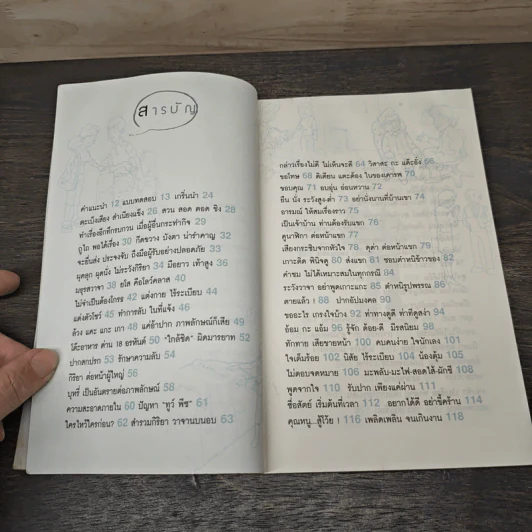 สารบัญ
คำแนะนำ 12 แบบทดสอบ 13 เกริ่นนำ 24
คะเบ้งเสียง สำเนียงแข็ง 26 สวน สอด คอด ชิง 28
ทำเรื่องอีกทึกรบกวน เมื่อผู้อื่นกระทำกิจ 29
ถูไถ พอได้เรื่อง 30 กีดขวาง บังตา น่ารำคาญ 32
จะยื่นส่ง ประจงจับ ถึงมือผู้รับอย่างปลอดภัย 33
ผุดลุก ผุดนั่ง ไม่ระวังกิริยา 34 มือยาว เท้าสูง 36
มธุรสวาจา 38 ยโส คือโลว์คลาส 40
ไม่จำเป็นต้องไกรธ 42 แต่งกาย ไร้ระเบียบ 44
แต่งตัวโชว์ 45 ทำการลับ ในที่แจ้ง 46
ล้วง แคะ แกะ เกา 48 แต่อ้าปาก ภาพลักษณ์ก็เสีย 49
โต๊ะอาหาร ด่าน 18 อรหันต์ 50 "ใกล้ชิด" ผิดมารยาท 52
ปากสกปรก 53 รักษาความลับ 54
กิริยา ต่อหน้าผู้ใหญ่ 56
บุหรี่ เป็นอันตรายต่อภาพลักษณ์ 58
ความสะอาดภายใน 60 ปัญหา "ทูวี่ พีซ" 61
ใครไหว้ใครก่อน? 62 สำรวมกิริยา วาจานบนอบ 63
กล่าวเรื่องไม่ดี ไม่เห็นจะดี 64 วิสาสะ กะ แต๊ะอั๋ง 66
ขอโทษ 68 ติเตียน แตะต้อง ในของเคารพ 70
ขอบคุณ 71 อบอุ่น อ่อนหวาน 72
ยืน นั่ง ระวังสูง-ต่ำ 73 อย่านั่งนานที่บ้านเขา 74
อารมณ์ ให้สมเรื่องราว 75
เป็นเจ้าบ้าน ท่านต้องรับแขก 76
ดูนาฬิกา ต่อหน้าแขก 77
เสียงกระซิบจากหัวใจ 78 ดุด่า ต่อหน้าแขก 79
เกาะติด พินิจดู 80 ส่งแขก 81 ชอบตำหนิข้าวของ 82
คำชม ไม่ได้เหมาะสมในทุกกรณี 84
ระวังวาจา อย่าพูดเกาะแกะ 85 ตำหนิรูปพรรณ 86
ตายแล้ว ! 88 ปากอัปมงคล 90
ขออะไร เกรงใจบ้าง 92 ท่าทางดูดี ท่าที่ดูสง่า 94
อ้อม กะ แอ้ม 96 รู้จัก ด้อย-ดี มีรสนิยม 98
ทักทาย เสียขายหน้า 100 คบคนง่าย ใจนักเลง 101
ใจเต็มร้อย 102 นิสัย ไร้ระเบียบ 104 น้องตุ้ม 105
ไม่ตอบจดหมาย 106 มะพลับ-มะไฟ-สอดไส้-ผักชี 108
พูดจากใจ 110 รับปาก เพียงแค่ผ่าน 111
ซื่อสัตย์ เริ่มต้นที่เวลา 112 อยากได้ดี อย่าขี้คร้าน 114
คุณหนู...สู้โว้ย ! 116 เพลิดเพลิน จนเกินงาน 118